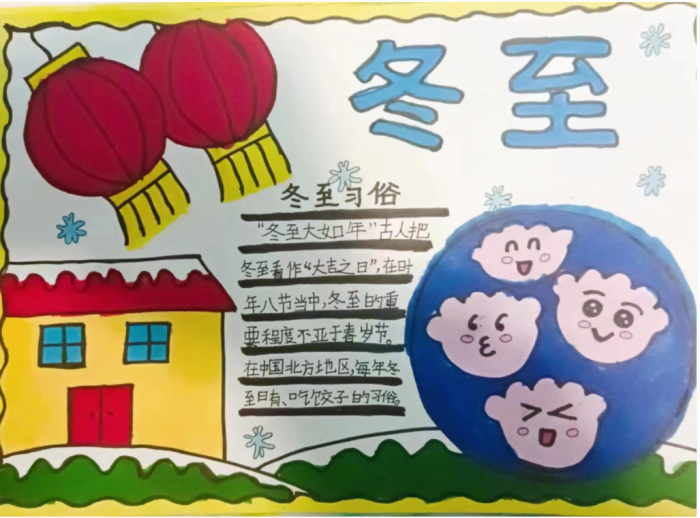 冬至
冬至习俗
“冬至大如年”古人把
冬至看作“大吉之日”,在时
年八节当中,冬至日的重
要程度不亚于春岁节。
在中国北方地区,每年冬
至日有、吃饺子的习俗。